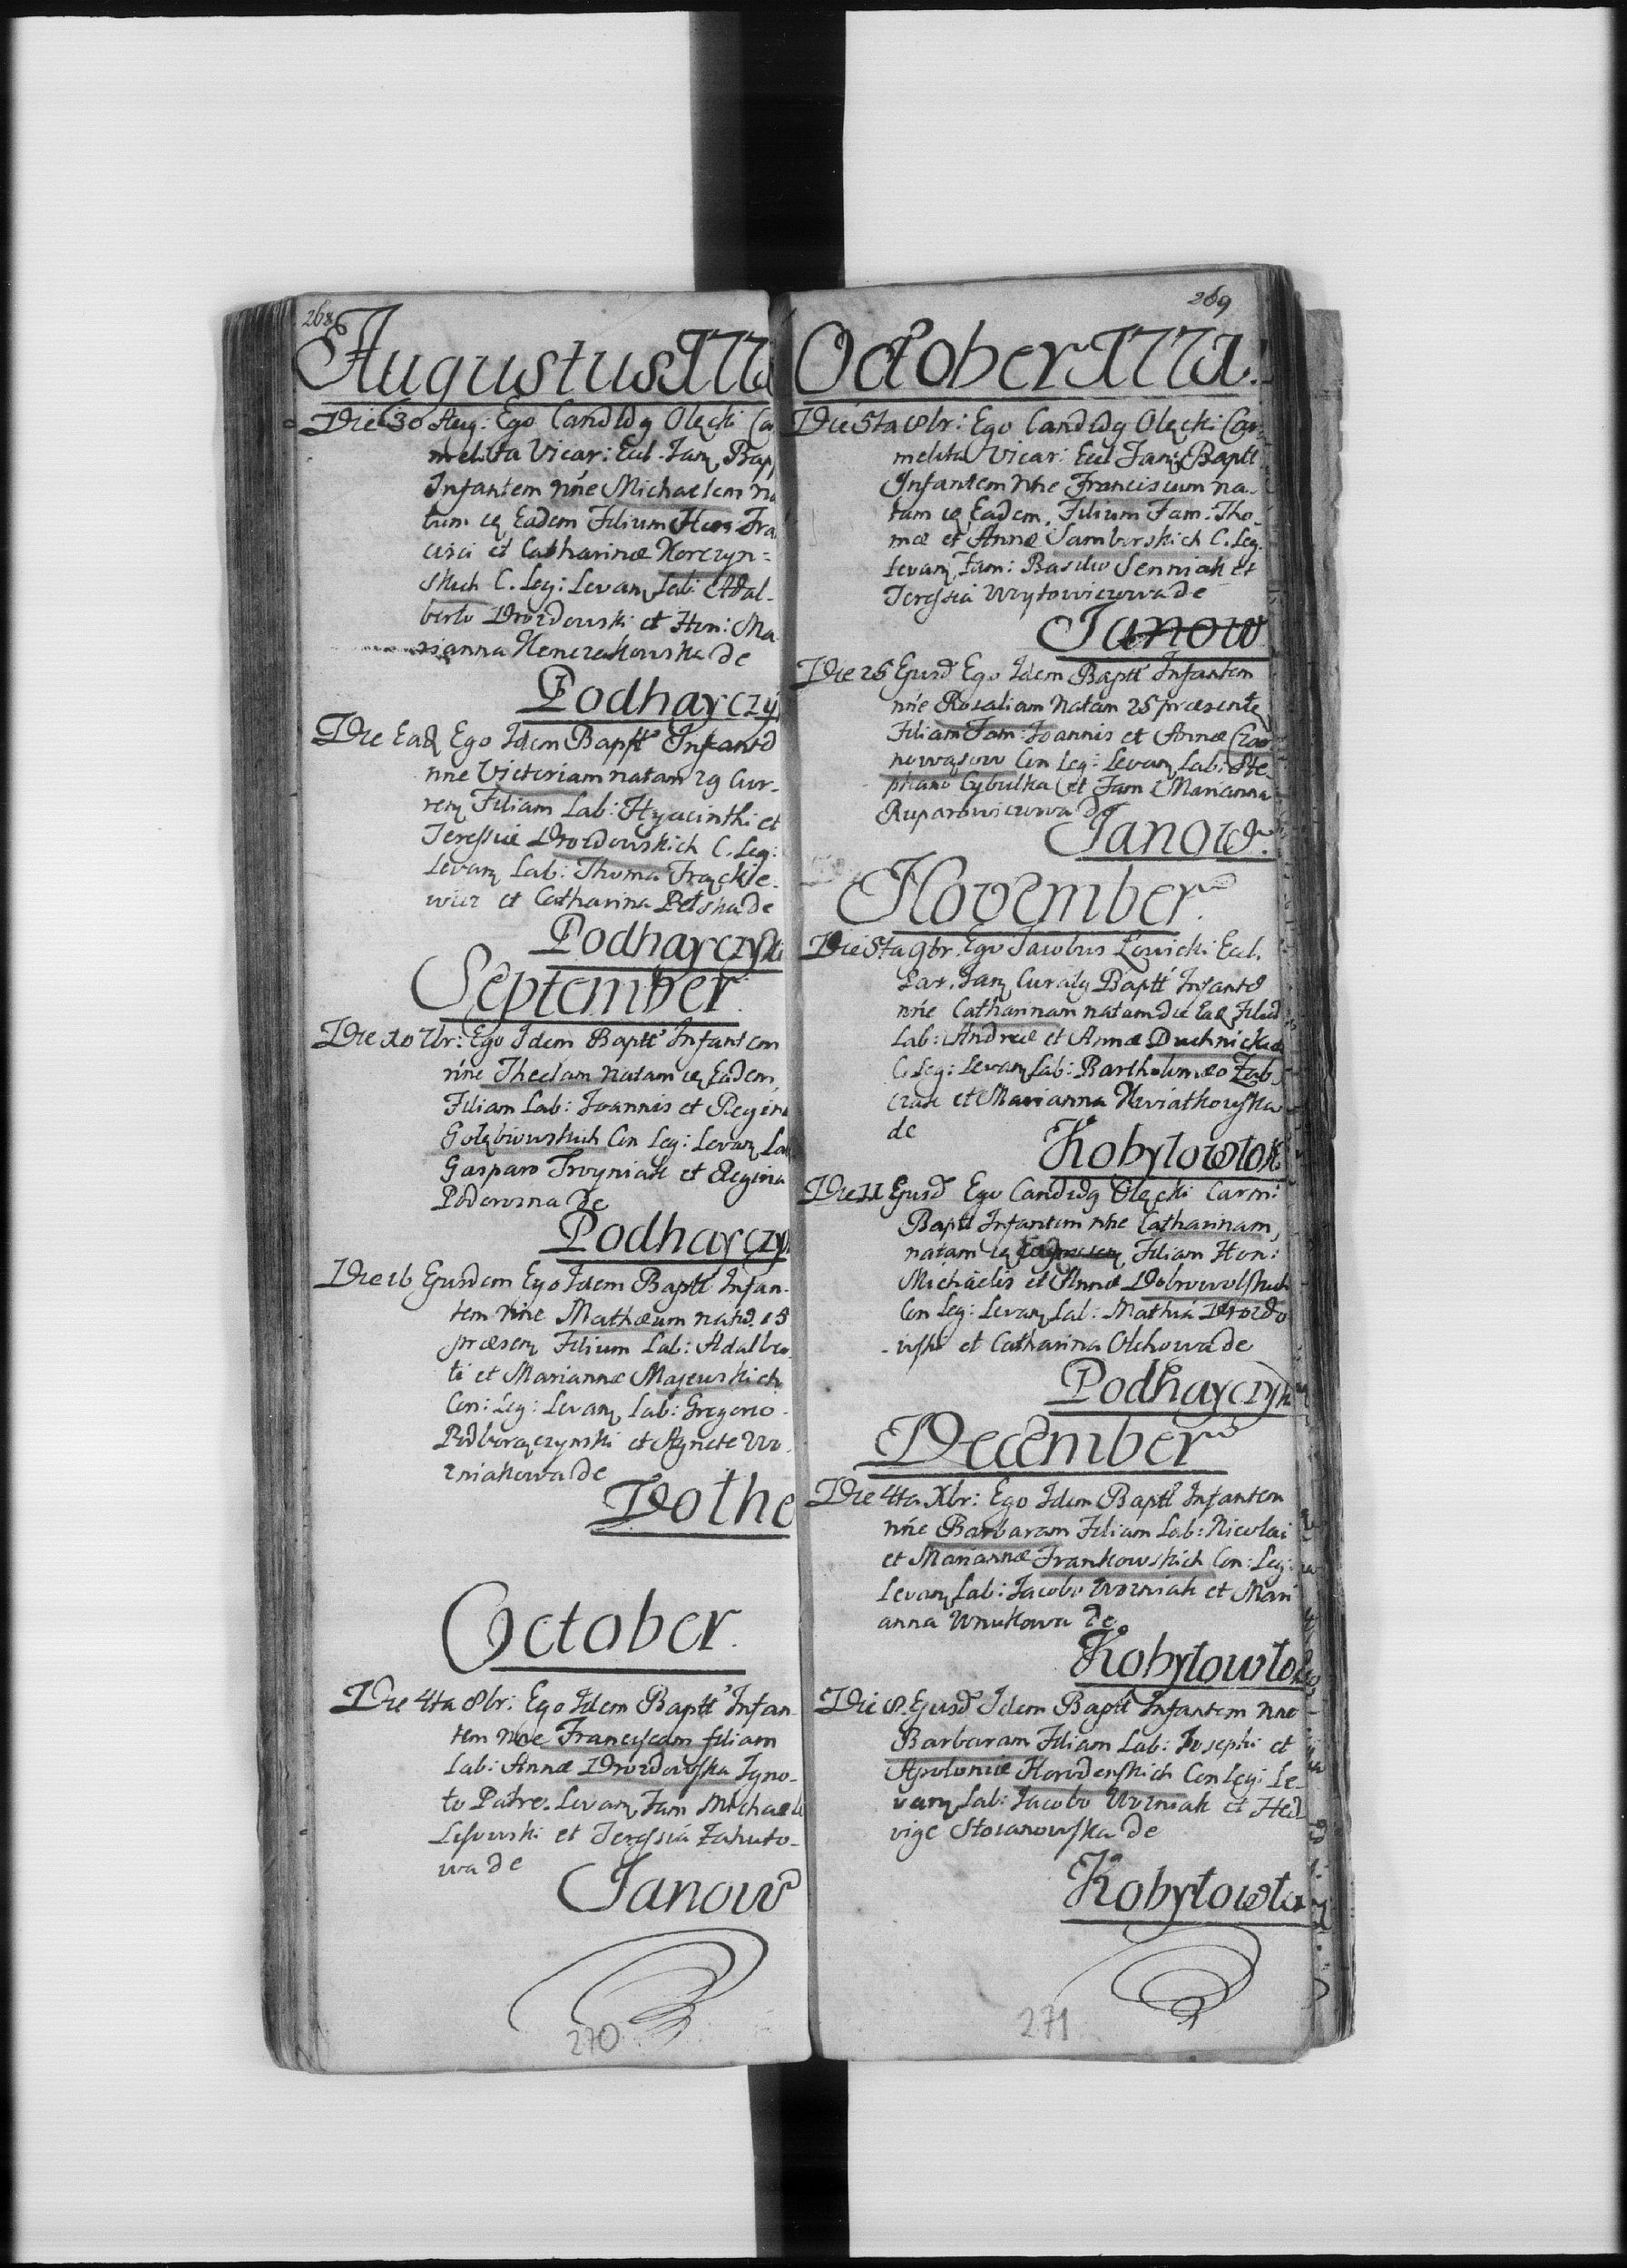 268
Augustus 177
Die 30 Aug: Ego Candidq Olęcki Ca
melita Vicar: Eccl. Janq Bap
Infantem nne Michaelem na
tum eq Eadem Filium Hon: Fra
cisci et Catharinæ Norczyn=
skich C. Leg: Levanq Lab: Adal-
berto Drozdowski et Hon: Ma
rianna Nenczakowska de
Podhayczy
Die Eadq Ego Idem Baptt Infantē
nne Victoriam natam 29 Cur-
renq Filiam Lab: Hyacinthi et
Teressiæ Drozdowskich C. Leg:
Levanq Lab: Thoma Frąckie-
wicz et Catharina Pelska de
Podhayczyk
September
Die 10 7br: Ego Idem Baptt Infantem
nne Theclam natam eq Eadem
Filiam Lab: Joannis et Regin
Gołębiowskich Con Leg: Levanq La
Gasparo Troyniak et Regina
Podorosna de
Podhayczy
Die 16 Ejusdem Ego Idem Baptt Infan-
tem nne Mathæum natū 15
præsenq Filium Lab: Adalber-
ti et Mariannæ Majewskich
Con: Leg: Levanq Lab: Gregorio
Podborączynski et Agnete Wo-
zniakowa de
Dołhe
October
Die 4ta 8br: Ego Idem Baptt Infan-
tem nne Franciscam filiam
Lab: Annæ Drozdowska Igno-
to Patre. Levanq Fam Michaele
Lisowski et Teressia Zahuto-
wa de
Janow
270
269
October 1771.
Die 5ta 8br: Ego Candidq Olęcki Car
melita Vicar: Eccl Janq Baptt
Infantem nne Franciscum na-
tum eq Eadem, Filium Fam: Tho-
mæ et Annæ Samborskich C. Leg.
Levanq Fam: Basilio Senniak et
Teressia Wrytowiczowa de
Janow
Die 26 Ejusd Ego Idem Baptt Infantem
nne Rosaliam natam 25 præsente
Filiam Fam: Joannis et Annæ Czar
nowąsow Con Leg: Levanq Lab: Ste-
phano Cybulka et Fam: Marianna
Ruparowiczowa de
Janow.
November
Die 5ta 9br. Ego Jacobus Łowicki Eccl.
Par. Janq Curatq Baptt Infantē
nne Catharinam natam die Eaq Filiā
Lab: Andreæ et Annæ Duchnickich
C. Leg: Levanq Lab: Bartholomæo Zab
czak et Marianna Kwiatkowska
de
Kobyłowłok
Die 11 Ejusd Ego Candidq Olęcki Carm:
Baptt Infantem nne Catharinam,
natam eq Filiam Hon:
Michaelis et Annæ Dobrowolskich
Con Leg: Levanq Lab: Mathia Drozdo
wski et Catharina Olchowa de
Podhayczyk
December
Die 4ta Xbr: Ego Idem Baptt Infantem
nne Barbaram Filiam Lab: Nicolai
et Mariannæ Frankowskich Con: Leg:
Levanq Lab: Jacobo Wozniak et Mari
anna Wnukowa de
Kobyłowło
Die 8. Ejusd Idem Baptt Infantem nne
Barbaram Filiam Lab: Josephi et
Apoloniæ Horodenskich Con Leg: Le-
vanq Lab: Jacobo Wozniak et Hed
vige Stoianowska de
Kobyłowło
271